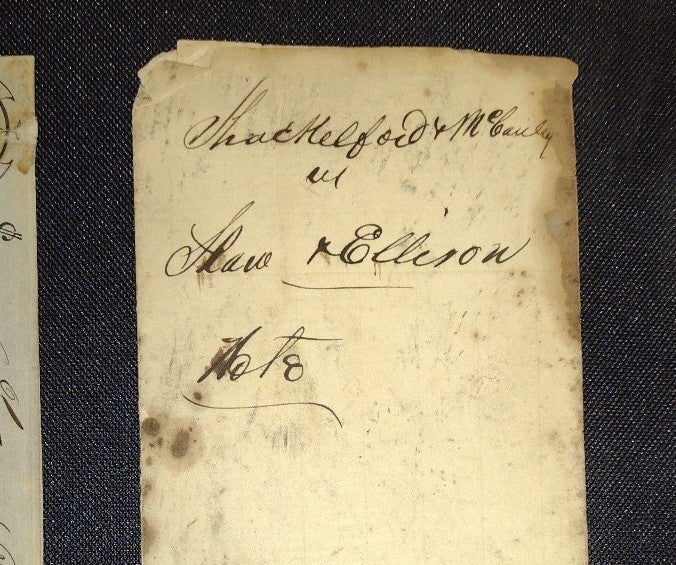 Shackelford & McCauley
vs
Shaw & Ellison
Note
$